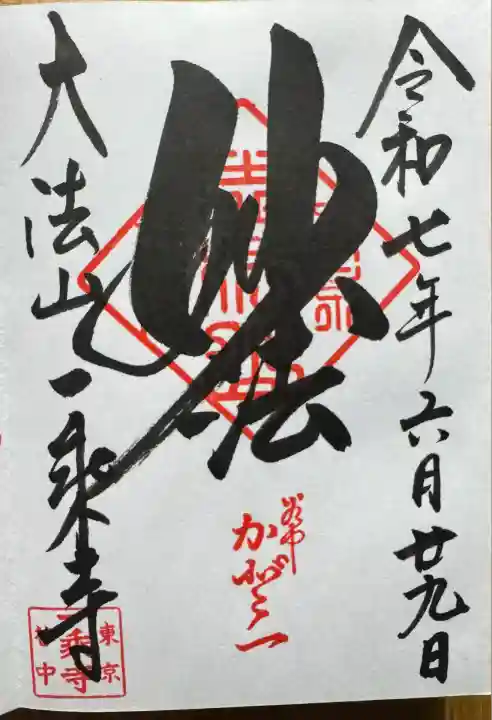 令和七年六月廿九日
妙法
谷中
大法山一乗寺
東京
一乗寺
谷中